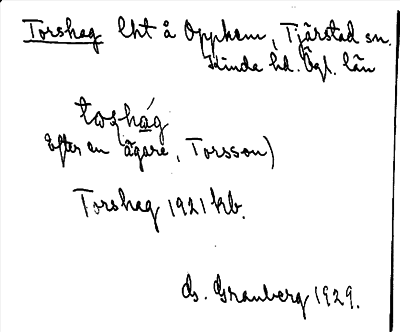 Torshag lht å Opphem, Tjärstad sn.
Kinda hd. Ögl. län
tɷṣhág
Efter en ägare, Torsson)
Torshag 1921 kb.
G. Granberg 1929.